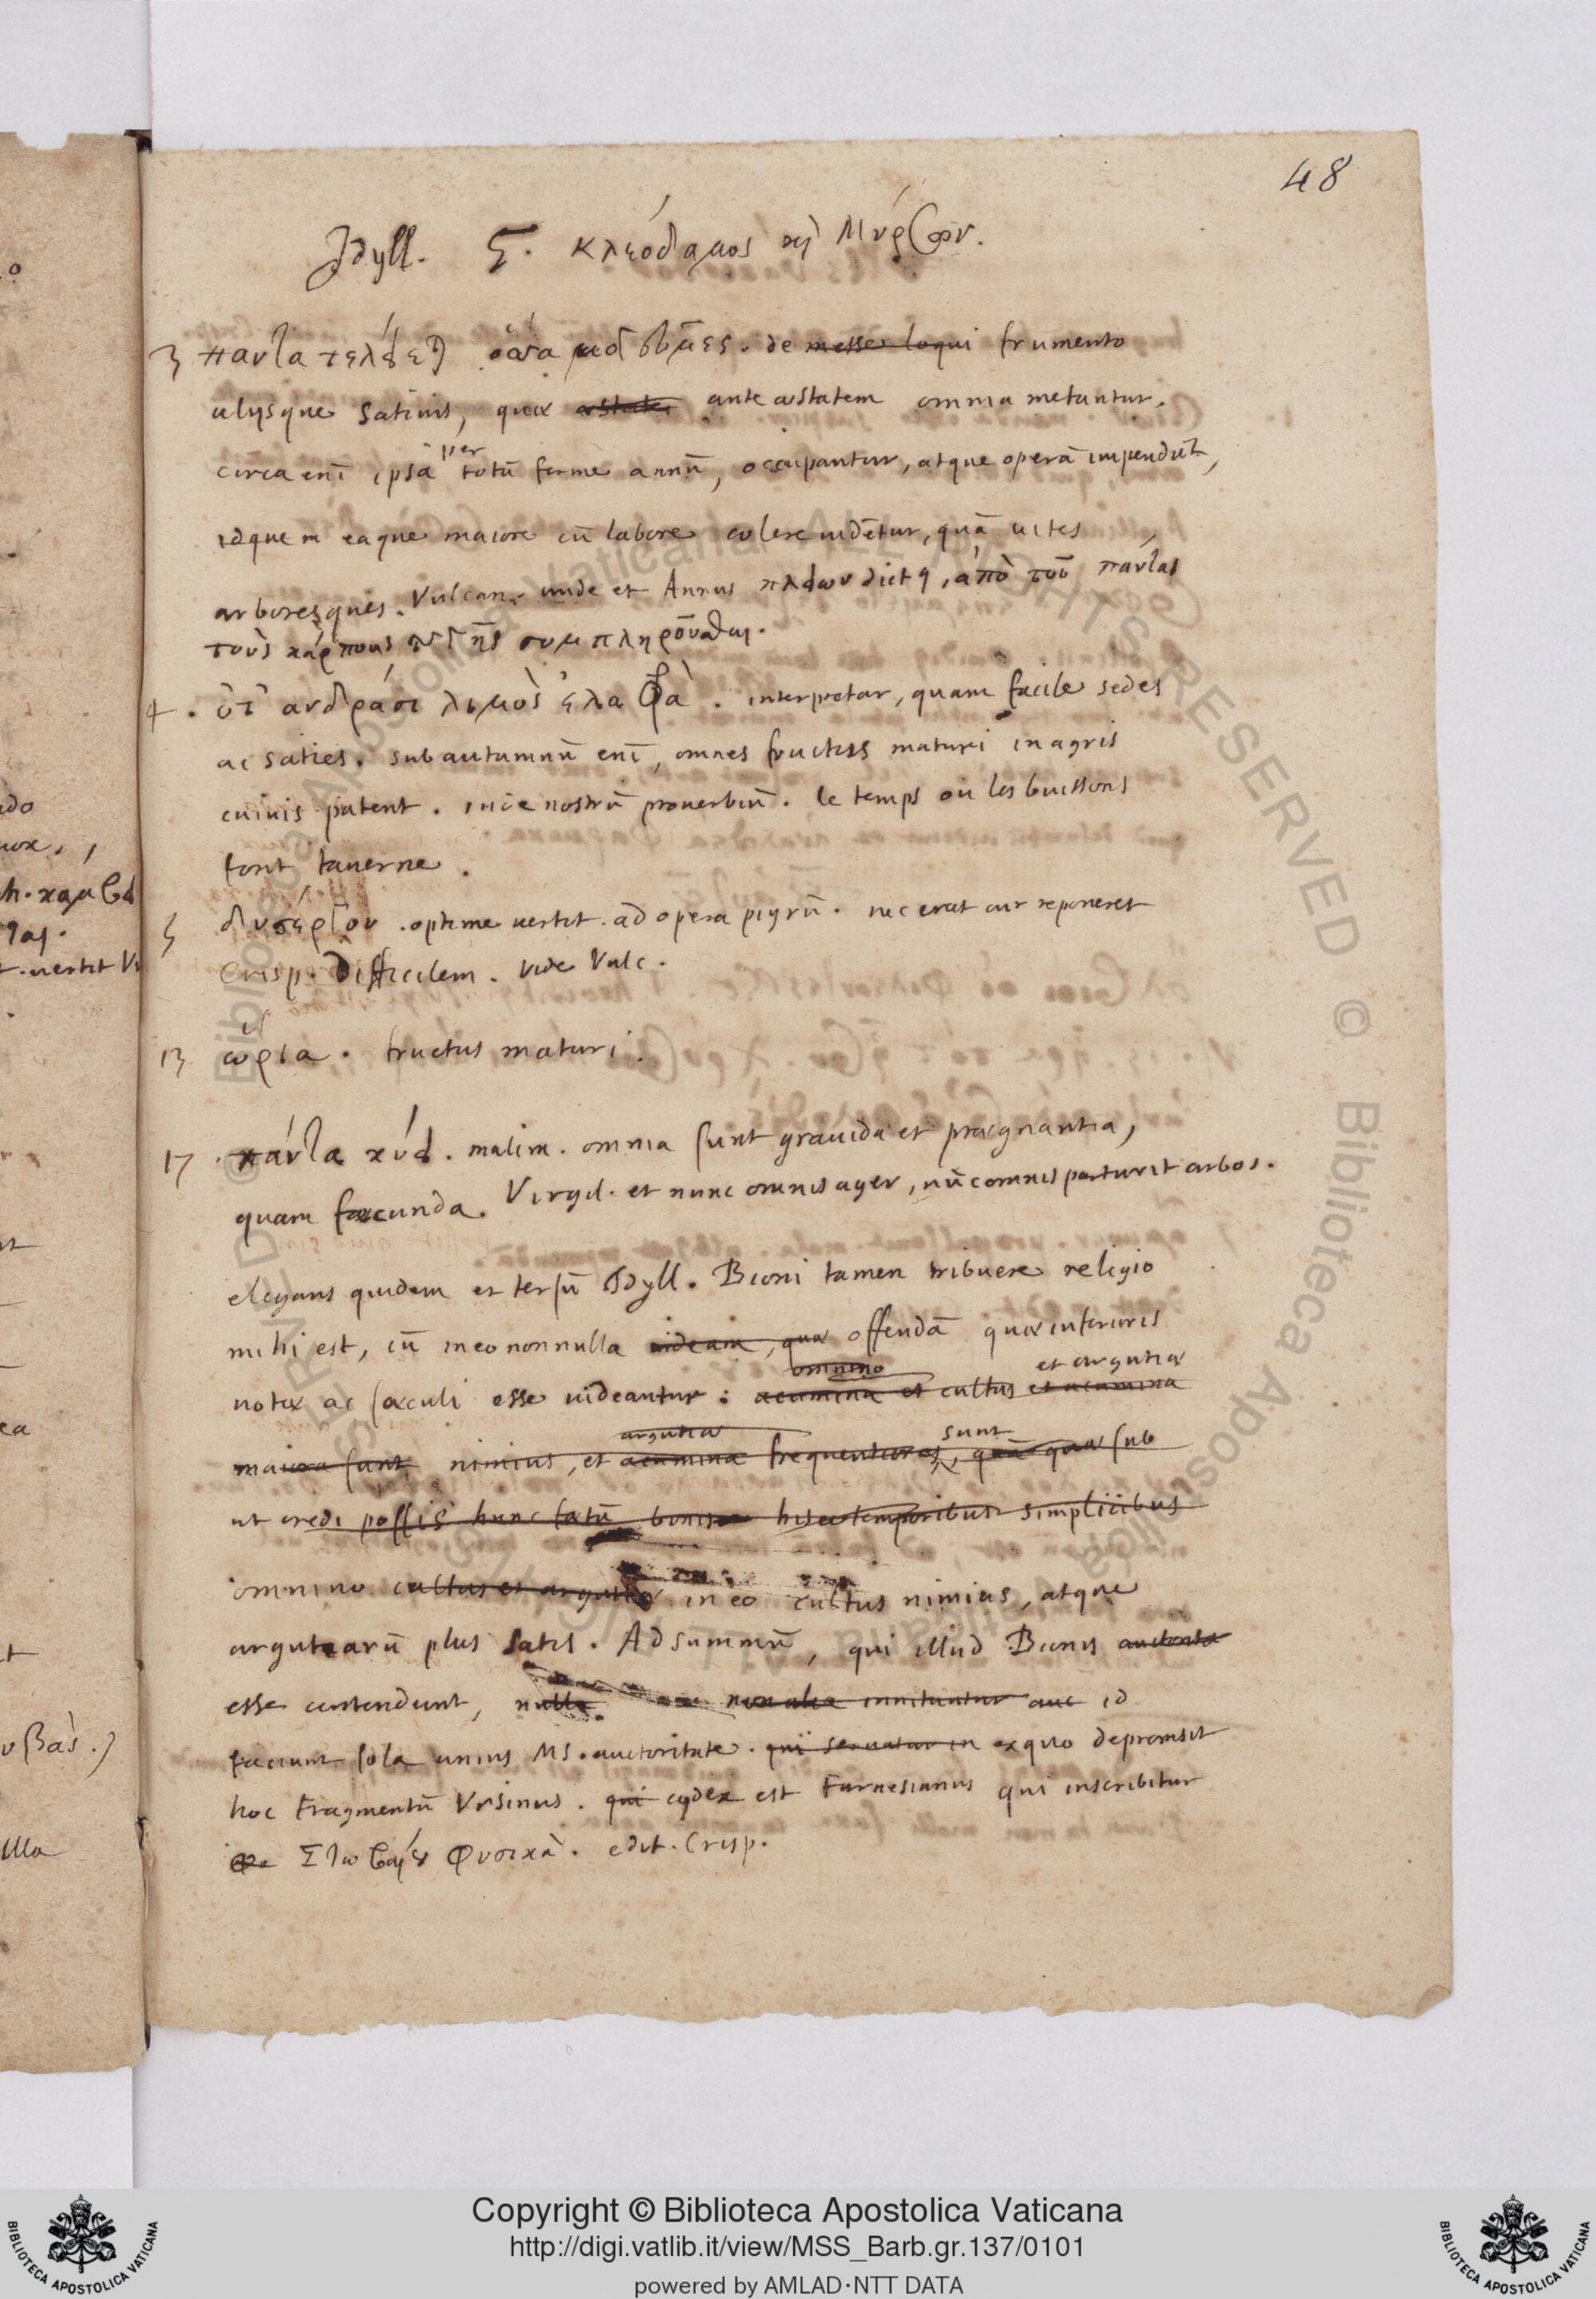 48
Idyll. ς. κλεόδαμος καὶ Μύρσων.
3 πάντα τελείεται ὅσσα μογεῦμες. de messe loqui frumento
alijsque sativis, quæ æstate ante æstatem omnia metantur.
circa enī ipsa per totū ferme annū, occupantur, atque operā impendūt,
idque in eaque maiore cū labore colere uidētur, quā uites
arboresque. Vulcan. unde et Annus dictus, ἀπὸ τοῦ πάντας
τοὺς κάρπους τῆς γῆς συμπληροῦσθαι.
4. ὅτ᾽ ἀνδράσι λιμὸς ἐλαφρὰ. interpretor, quam facile sedes
ac saties. sub autumnū enī, omnes fructus maturi in agris
cuiuis patent. inde nostrū prouerbiū. le temps où les buissons
sont tauerne.
5 δυσέργον. optime uertit. ad opera pigrū. nec erat cur reponeret
Crisp. Difficilem. vide Vulc.
13 ὥρια. fructus maturi.
17 πάντα κύει. malim. omnia sunt grauida et prægnantia,
quam fæcunda. Virgil. et nunc omnis ager, nūc omnis parturit arbos.
elegans quidem et tersū Idyll. Bioni tamen tribuere religio
mihi est, cū in eo nonnulla uideam, quæ offendā quæ inferioris
omnino et argutiæ
notæ ac sæculi esse uideantur: acumina et cultus et acumina
argutiæ sunt
maiora sunt nimius, et acumina frequentiores, quā quæ sub
ut credi possis hunc fætū bonis temporibus simplicibus
omnino cultus et argutiæ in eo cultus nimius, atque
argutiarū plus satis. Ad summū, qui illud Bionis
esse contendunt, nulla non alia innituntur id
faciunt sola unius MS. auctoritate. qui seruatur in ex quo depromsit
hoc Fragmentū Vrsinus. qui codex est Farnesianus qui inscribitur
Στωβαίου Φυσικὰ. edit. Crisp.
Copyright © Biblioteca Apostolica Vaticana
http://digi.vatlib.it/view/MSS_Barb.gr.137/0101
powered by AMLAD·NTT DATA
BIBLIOTECA APOSTOLICA VATICANA
BIBLIOTECA APOSTOLICA VATICANA